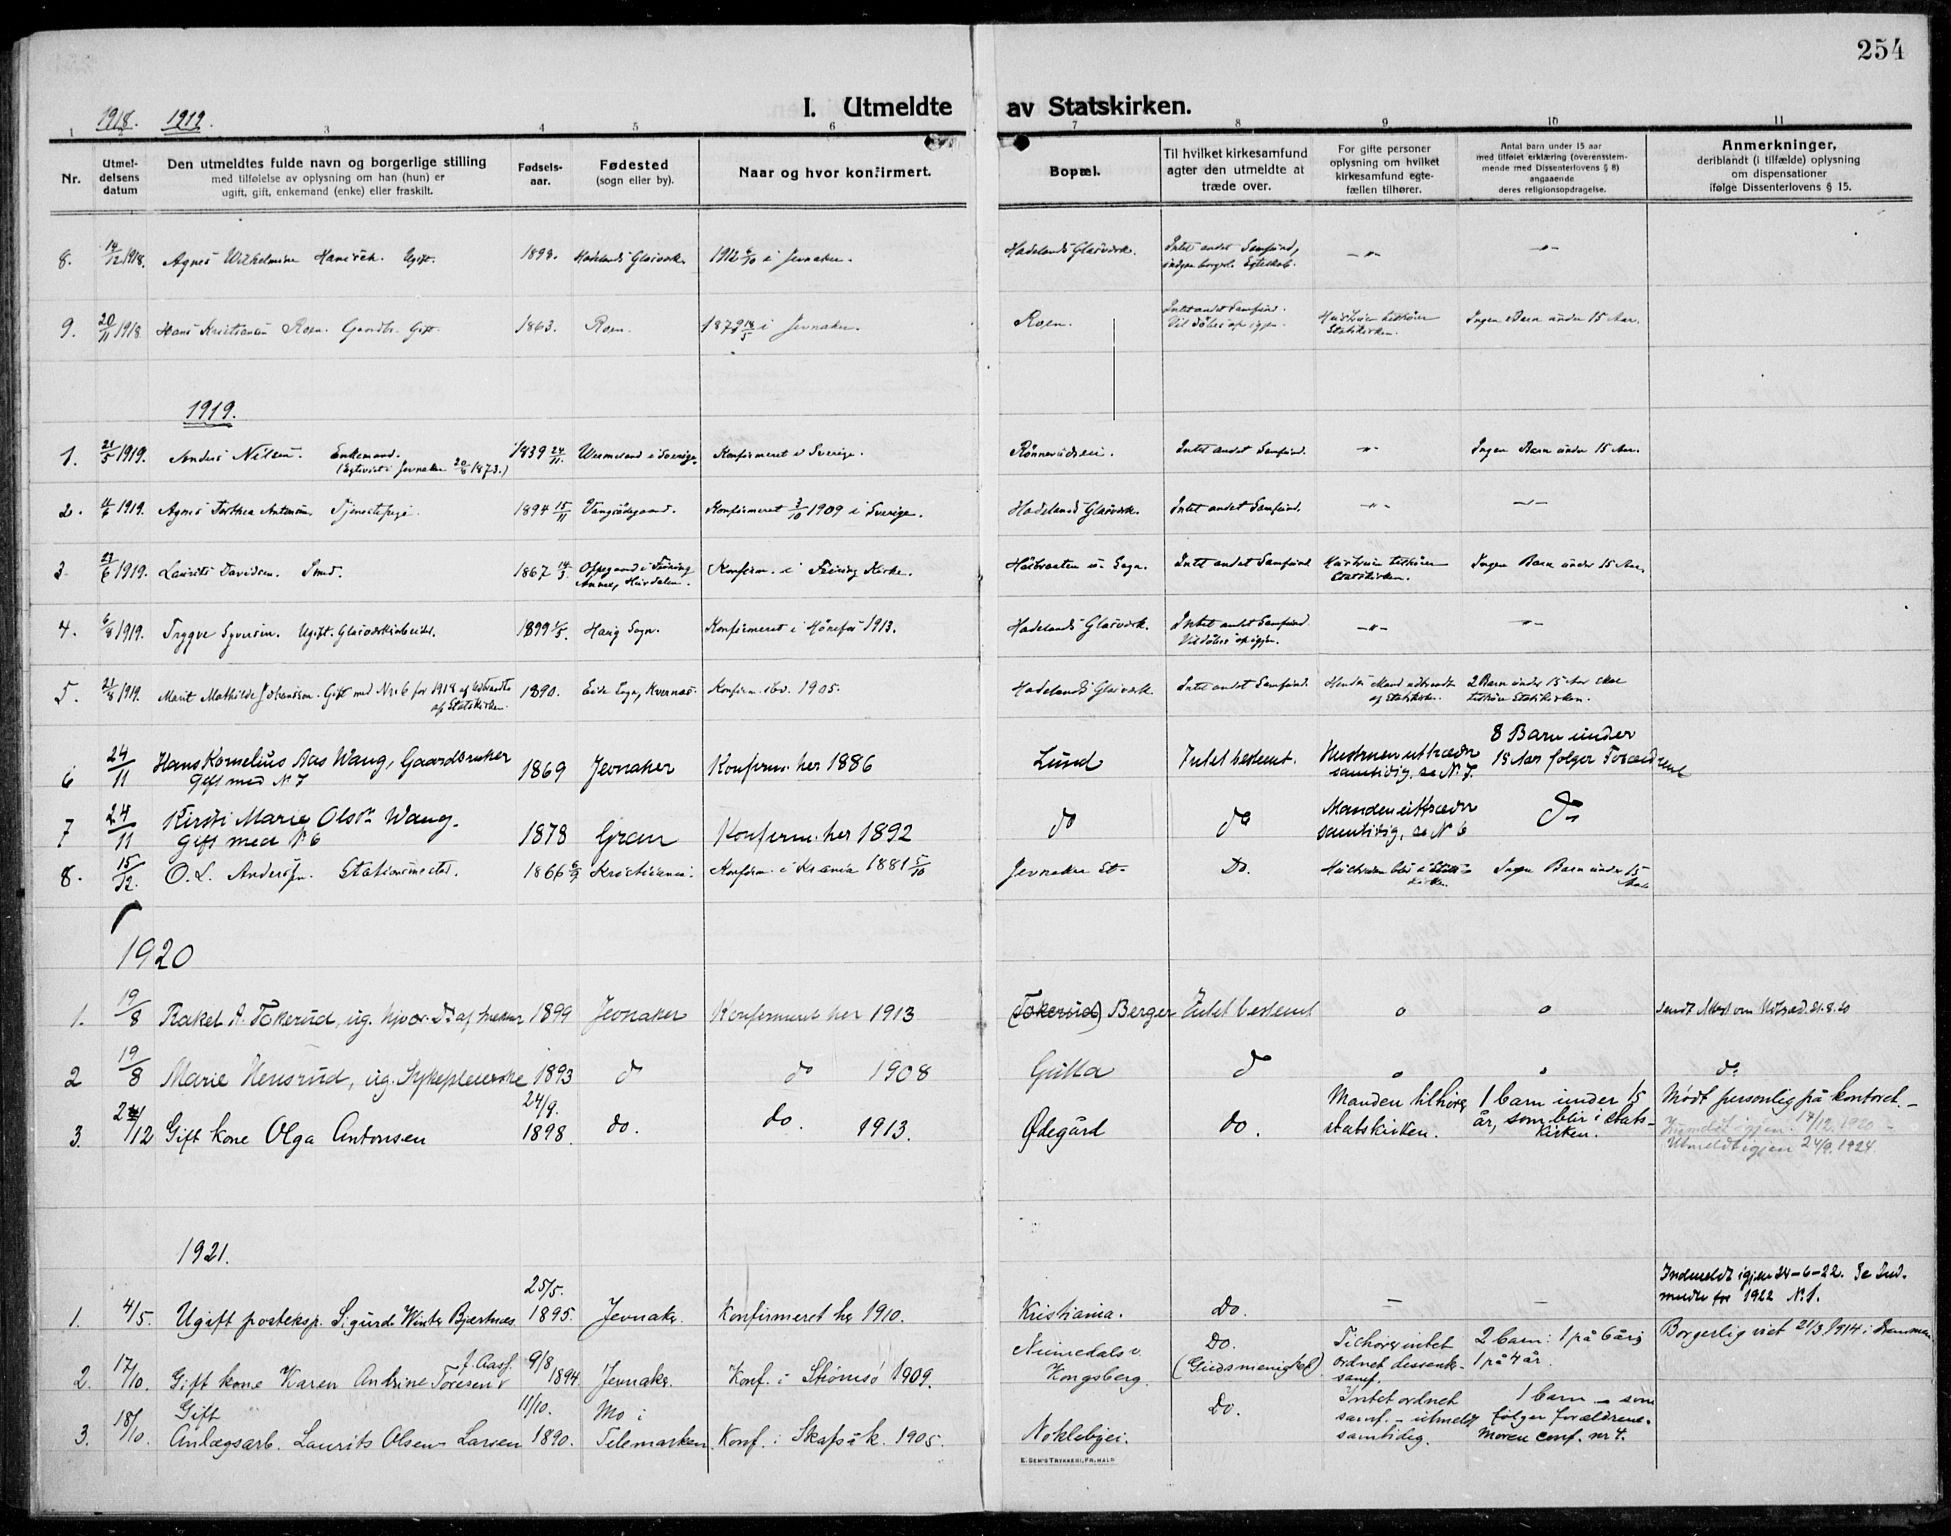 254
1918. 1919.
I. Utmeldte av Statskirken.
1 2 3 4 5 6 7 8 9 10 11
Nr.
Utmel-
delsens
datum
Den utmeldtes fulde navn og borgerlige stilling
med tilføielse av oplysning om han (hun) er
ugift, gift, enkemand (enke) eller fraskilt.
Fødsels-
aar.
Fødested
(sogn eller by).
Naar og hvor konfirmert.
Bopæl.
Til hvilket kirkesamfund
agter den utmeldte at
træde over.
For gifte personer
oplysning om hvilket
kirkesamfund egte-
fællen tilhører.
Antal barn under 15 aar
med tilføiet erklæring (overensstem-
mende med Dissenterlovens § 8)
angaaende
deres religionsopdragelse.
Anmerkninger,
deriblandt (i tilfælde) oplysning
om dispensationer
ifølge Dissenterlovens § 15.
8. 14/12 1918. Agnes Wilhelmine Hansen. Ugift. 1898. Hadelands Glasværk. 1912 6/10 i Jevnaker. Hadelands Glasværk. Intet andet Samfund, Egteskab. -"- -"-
9. 20/11 1918 Hans Kristiansen Roen. Gaardbr. Gift. 1863. Roen. 1879 18/5 i Jevnaker. Roen. Intet andet Samfund. Vil døbes op igjen. Hustruen tilhører Statskirken. Ingen Barn under 15 Aar.
1919.
1. 21/5 1919. Anders Nilsen. Enkemand. (Egteviet i Jevnaker 20/6 1873.) 1839 24/11. Wermeland i Sverige. Konfirmeret i Sverige. Rønnerudseie. Intet andet Samfund. -"- Ingen Barn under 15 Aar.
2. 11/6 1919. Agnes Dorthea Antonsen. Tjenestepige. 1894 15/11 Vangsødegaard. Konfirmeret 3/10 1909 i Sverige. Hadelands Glasværk. Intet andet Samfund. -"- -"-
3 23/6 1919. Laurits Davidsen. Smed. 1867 14/3. Oppegaard i Feiring Annex, Hurdalen. Konfirm. i Feiring Kirke. Høibraaten Sogn. Intet andet Samfund Hustruen tilhører Statskirken. Ingen Barn under 15 Aar.
4. 6/8 1919. Trygve Syversen. Ugift. Glasværksarbeider. 1899 1/5. Haug Sogn. Konfirmeret i Hønefos 1913. Hadelands Glasværk. Intet andet Samfund. Vil døbes op igjen. -"- -"-
5. 21/8 1919. Marit Mathilde Johansson. Gift med Nr 6 for 1918 af Udtraadte af Statskirken. 1890. Eide Sogn, Kvernæs. Konfirm. 1905. Hadelands Glasværk. Intet andet Samfund. Hendes Mand udtraadt af Statskirken. 2 Barn under 15 Aar skal tilhøre Statskirken.
6 24/11 Hans Kornelius Aas Wang, Gaardbruker Gift med N 7 1869 Jevnaker Konfirm. her 1886 Lund Intet bestemt. Hustruen uttræder samtidig, se N. 7. 8 Barn under 15 Aar følger Forældrene
7 24/11 Kirsti Marie Olsdr Wang. Gift med N 6 1878 Gran Konfirm. her 1892 do do Manden uttræder samtidig, se N 6 do
8. 15/12. O. L. Andersen. Stationsmester. 1866 6/9 Kristiania. Konfirm. i Krania 1881 5/10 Jevnaker St. Do. Hustruen blir i Statskirken. Ingen Barn under 15 Aar
1920
1. 19/8 Rakel A. Tokerud, ug. 1899 Jevnaker Konfirmeret her 1913 (Tokerud) Berger Intet bestemt o o Sendt Attest om Uttræd. 21.8.20
2 19/8 Marie Hensrud, ug. Sykepleierske 1893 do do 1908 Gulla do " " do.
3. 24/12 Gift kone Olga Antonsen 24/9. 1898. do. do. 1913. Ødegård do. Manden tilhører statskirken. 1 barn under 15 år, som blir i stats-kirken. Mødt personlig på kontoret. - Inmeldt igjen 17/12. 1920 - Utmeldt igjen 24/9. 1924.
1921.
1. 4/5. Ugift posteksp. Sigurd Winter Bjertnæs 25/5. 1895. Jevnaker. Konfirmeret her 1910. Kristiania. Do. - - Indmeldt igjen 24-6-22. Se Ind- meldte for 1922 N. 1.
2. 17/10. Gift kone Karen Antrine Toresen f. Aasf. 9/8 1894 Jevnaker. Konf. i Strømsø 1909. Numedals v. Kongsberg. Do. (Gudsmenighet). Tilhører intet ordnet dissentersamf. 2 barn: 1 på 6 år, 1 på 4 år. Borgerlig viet 21/3 1914 i Drammen
3. 18/10. Gift Anlægsarb. Laurits Olsen Larsen 11/10. 1890. Mo i Telemarken. Konf. i Skafså k. 1905. Noklebyei. Do. Intet ordnet samf. - utmeldt samtidig. 1 barn - som følger forældrene. Moren conf. nr 4.
E. SEM'S TRYKKERI, FR.HALD